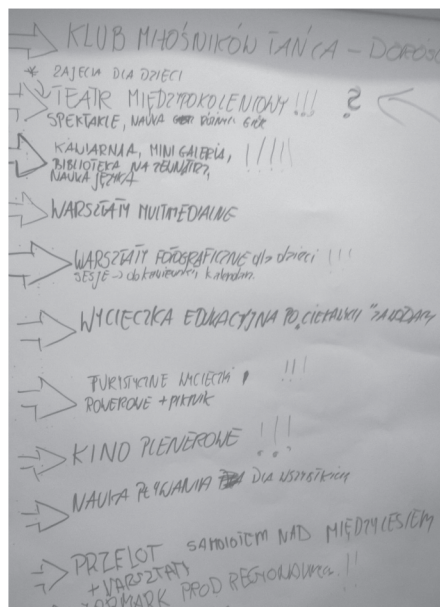 KLUB MIŁOŚNIKÓW TAŃCA – DOROŚL
* ZAJĘCIA DLA DZIECI
TEATR MIĘDZYPOKOLENIOWY !!! ?
SPEKTAKLE, NAUKA
KAWIARNIA, MINI GALERIA, !!!!
BIBLIOTEKA NA ZEWNĄTRZ,
NAUKA JĘZYKA
WARSZTATY MULTIMEDIALNE
WARSZTATY FOTOGRAFICZNE dla dzieci !!!
SESJE → kalendarz
WYCIECZKA EDUKACYJNA PO "CIEKAWYCH"
TURYSTYCZNE WYCIECZKI !!!
ROWEROWE + PIKNIK
KINO PLENEROWE !!!
NAUKA PŁYWANIA DLA WSZYSTKICH
PRZELOT SAMOLOTEM NAD MIĘDZYLESIEM
+ WARSZTATY
JARMARK PROD REGIONALNA !!